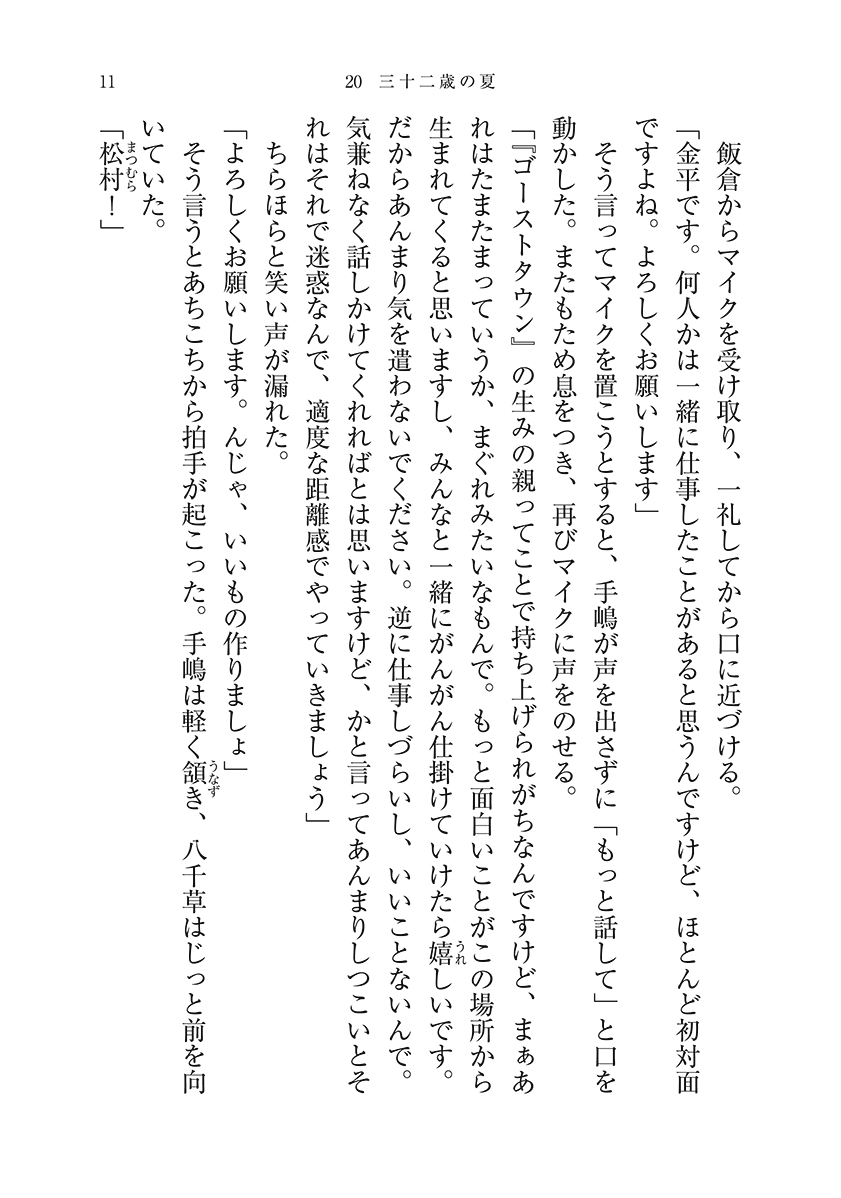 11
20 三十二歳の夏
飯倉からマイクを受け取り、一礼してから口に近づける。
「金平です。何人かは一緒に仕事したことがあると思うんですけど、ほとんど初対面
ですよね。よろしくお願いします」
そう言ってマイクを置こうとすると、手嶋が声を出さずに「もっと話して」と口を
動かした。またもため息をつき、再びマイクに声をのせる。
「『ゴーストタウン』の生みの親ってことで持ち上げられがちなんですけど、まぁあ
れはたまたまっていうか、まぐれみたいなもんで。もっと面白いことがこの場所から
生まれてくると思いますし、みんなと一緒にがんがん仕掛けていけたら嬉しいです。
だからあんまり気を遣わないでください。逆に仕事しづらいし、いいことないんで。
気兼ねなく話しかけてくれればとは思いますけど、かと言ってあんまりしつこいとそ
れはそれで迷惑なんで、適度な距離感でやっていきましょう」
ちらほらと笑い声が漏れた。
「よろしくお願いします。んじゃ、いいもの作りましょ」
そう言うとあちこちから拍手が起こった。手嶋は軽く頷き、八千草はじっと前を向
いていた。
「松村！」
うれ
うなず
まつむら